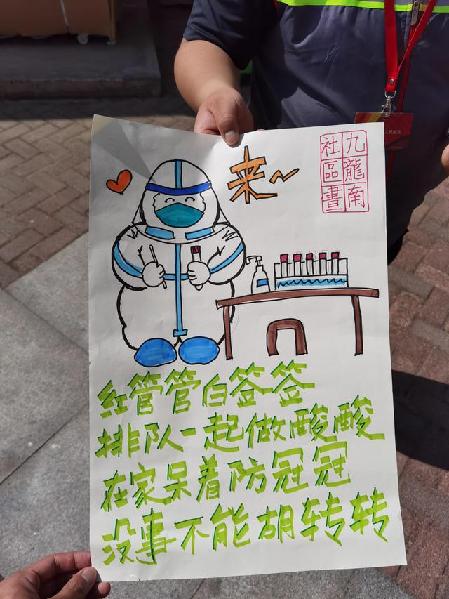 来~
九龍南
社區書
红管管白签签
排队一起做酸酸
在家呆着防冠冠
没事不能胡转转